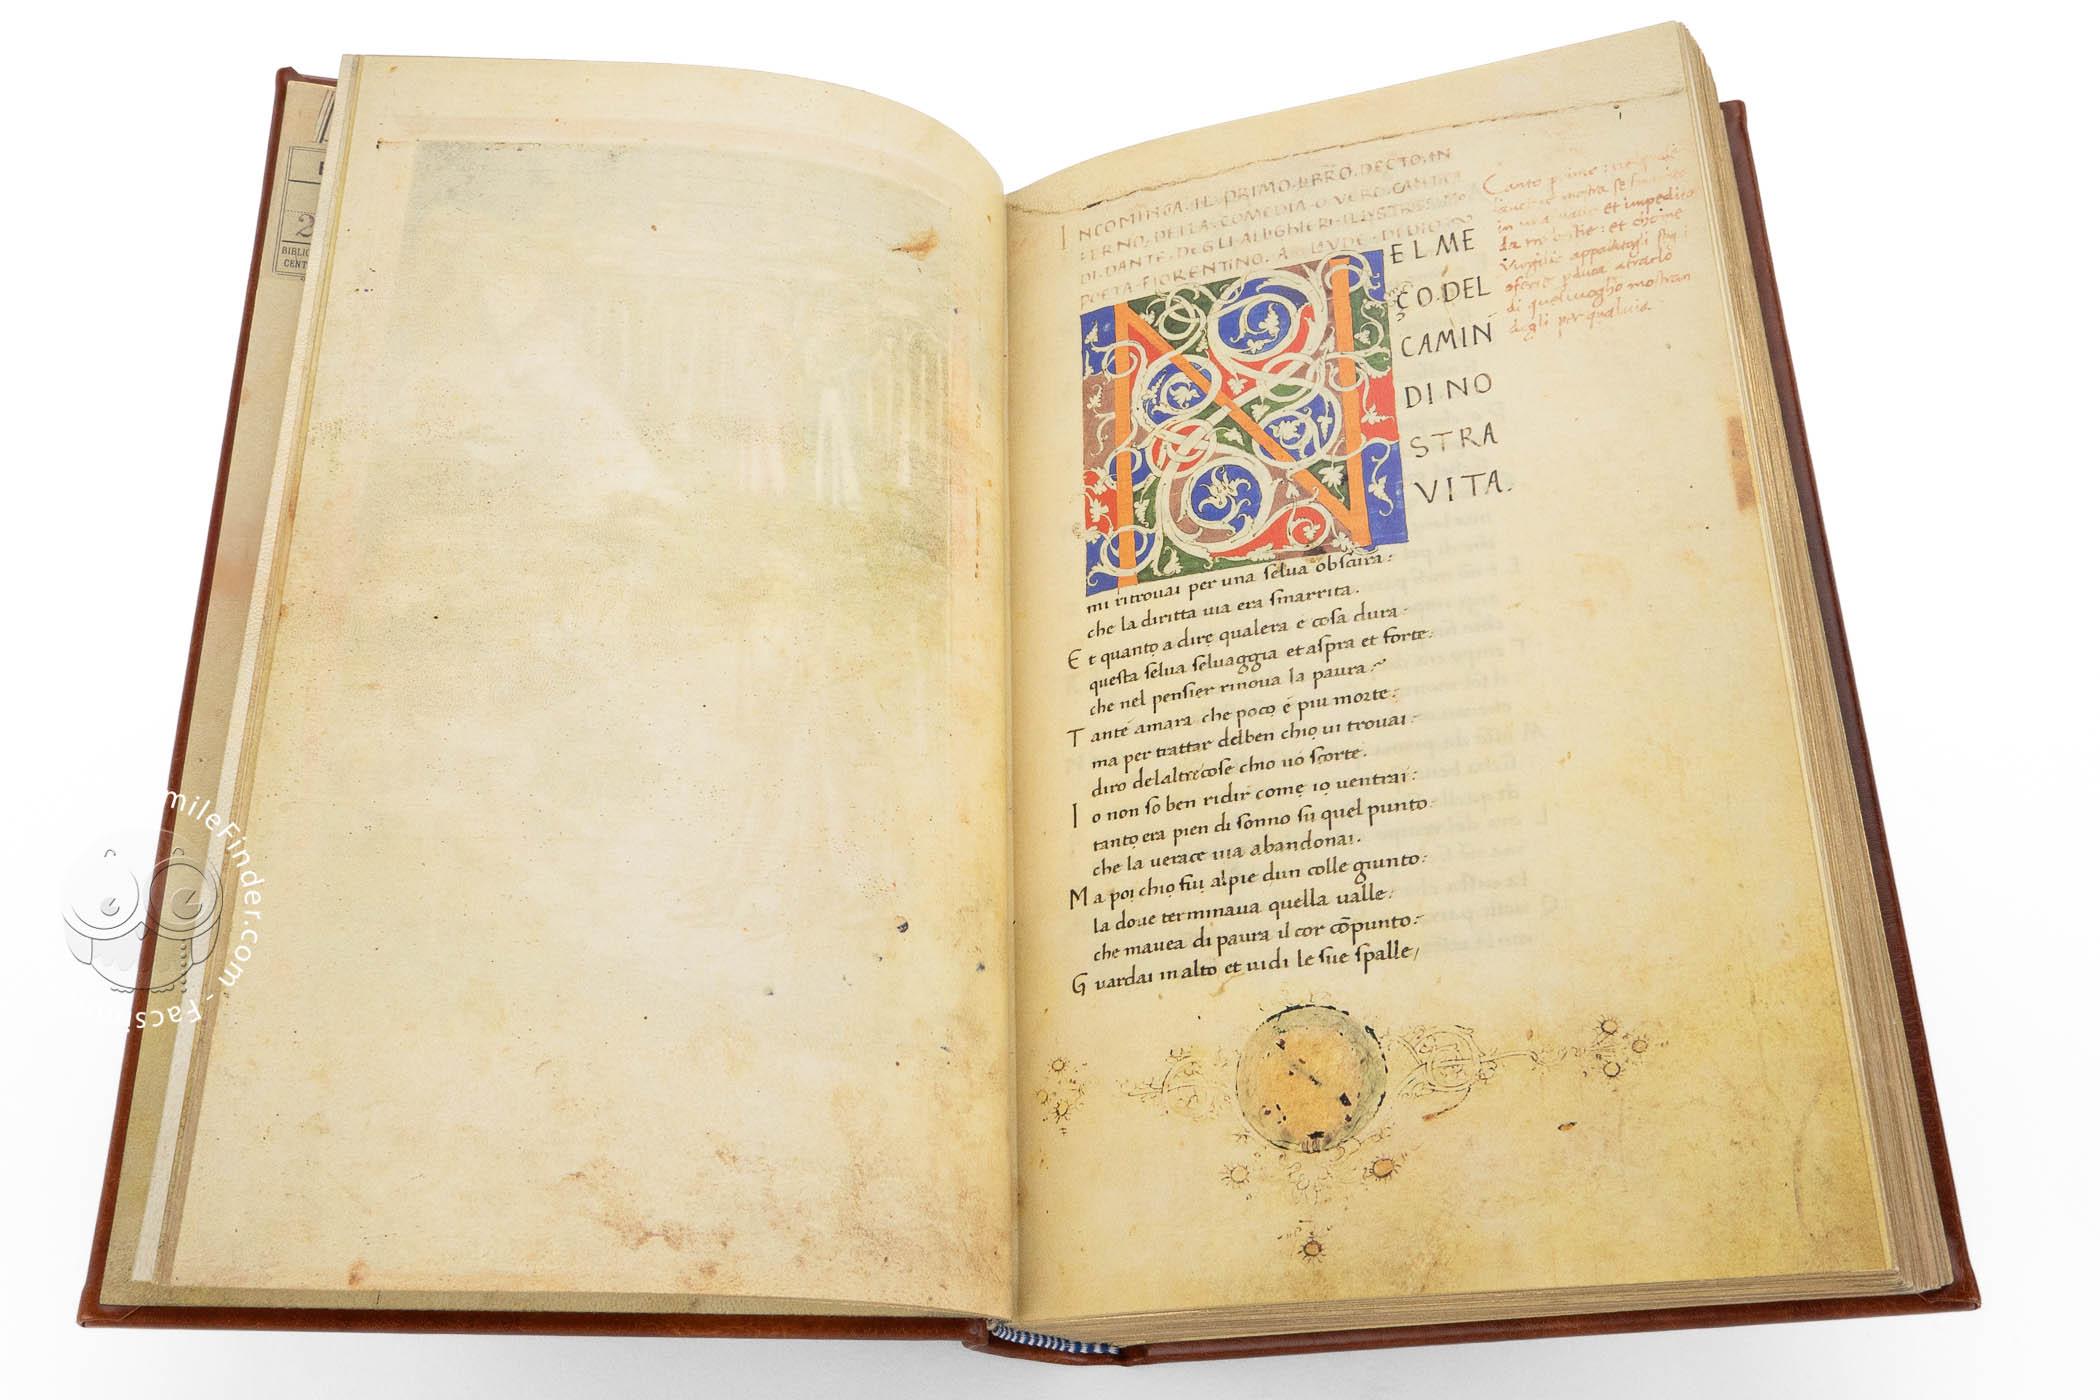 2
BIBLIO
CENT
INCOMINCA·IL·PRIMO·LIBRO·DECTO·IN
FERNO·DELLA·COMEDIA·O VERO·CANTICA
DI·DANTE·DEGLI·ALIGHIERI·ILLVSTRISSIMO
POETA·FIORENTINO·A·LAVDE·DI DIO
NEL ME
ÇO·DEL
CAMIN
DI NO
STRA
VITA.
mi ritrouai per una selua obscura:
che la diritta uia era smarrita.
Et quanto a dire qualera e cosa dura·
questa selua seluaggia et aspra et forte·
che nel pensier rinoua la paura:~
Tante amara che poco e piu morte:
ma per trattar delben chio ui trouai:
diro delaltre cose chio uo scorte.
Io non so ben ridir come io uentrai:
tanto era pien di sonno su quel punto·
che la uerace uia abandonai.
Ma poi chio fui alpie dun colle giunto:
la doue terminaua quella ualle:
che mauea di paura il cor cōpunto:
Guardai in alto et uidi le sue spalle/
Canto primo:
mostra se
in una ualle et impedito
da tre bestie: et chome
Virgilio
di quel luogho mostran
dogli per qual uia
mileFinder.com - Facsi